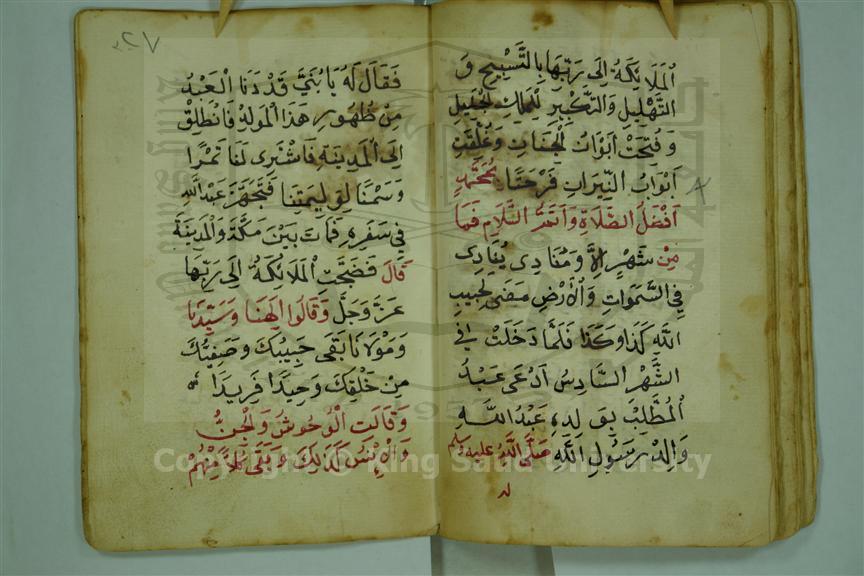 الْمَلَائِكَةُ اِلَى رَبِّهَا بِالتَّسْبِيحِ وَ
التَّهْلِيلِ وَالتَّكْبِيرِ لِلْمَلِكِ الْجَلِيلِ
وَفُتِحَتْ اَبْوَابُ الْجِنَانِ وَغُلِّقَتْ
اَبْوَابُ النِّيرَانِ فَرَحًا بِمُحَمَّدٍ
اَفْضَلُ الصَّلَاةِ وَاَتَمُّ السَّلَامِ فَمَا
مِنْ شَهْرٍ اِلَّا وَمُنَادِى يُنَادِى
فِي السَّمَوَاتِ وَالْاَرْضِ مَضَى لِحَبِيبِ
اللَّهِ كَذَا وَكَذَا فَلَمَّا دَخَلَتْ فِي
الشَّهْرِ السَّادِسِ اَدْعَى عَبْدُ
الْمُطَّلِبْ بِوَلَدِهِ عَبْدُ اللَّهِ
وَالِدْ رَسُولِ اللَّهِ صَلَّى اللَّهُ عليه وسلم
٧٢
فَقَالَ لَهُ يَا بُنَيَّ قَدْ دَنَا الْعَبْدُ
مِنْ ظُهُورِ هَذَا الْمَولِدْ فَانْطَلِقْ
اِلَى الْمَدِينَةِ فَاشْتَرِى لَنَا تَمْرًا
وَسَمْنًا لِوَلِيمَتِنَا فَتَجَهَّزَ عَبْدُ اللَّهِ
فِي سَفَرِهِ فَمَاتَ بَيْنَ مَكَّةَ وَالْمَدِينَةَ
قَالَ فَضَجَّتِ الْمَلَائِكَةُ اِلَى رَبِّهَا
عَزَّ وَجَلَّ وَقَالُوا اِلَهَنَا وَسَيِّدَنَا
وَمَوْلَانَا بَقَى حَبِيبُكَ وَصَفِيُّكَ
مِنْ خَلْقِكَ وَحِيدًا فَرِيدًا
وَقَالَتِ الْوُحُوشُ وَالْجِنُّ
وَالْاِنْسُ لَذَلِكَ وَبَقَى كُلاًّ مِنْهُمْ
Copyright © King Saud University